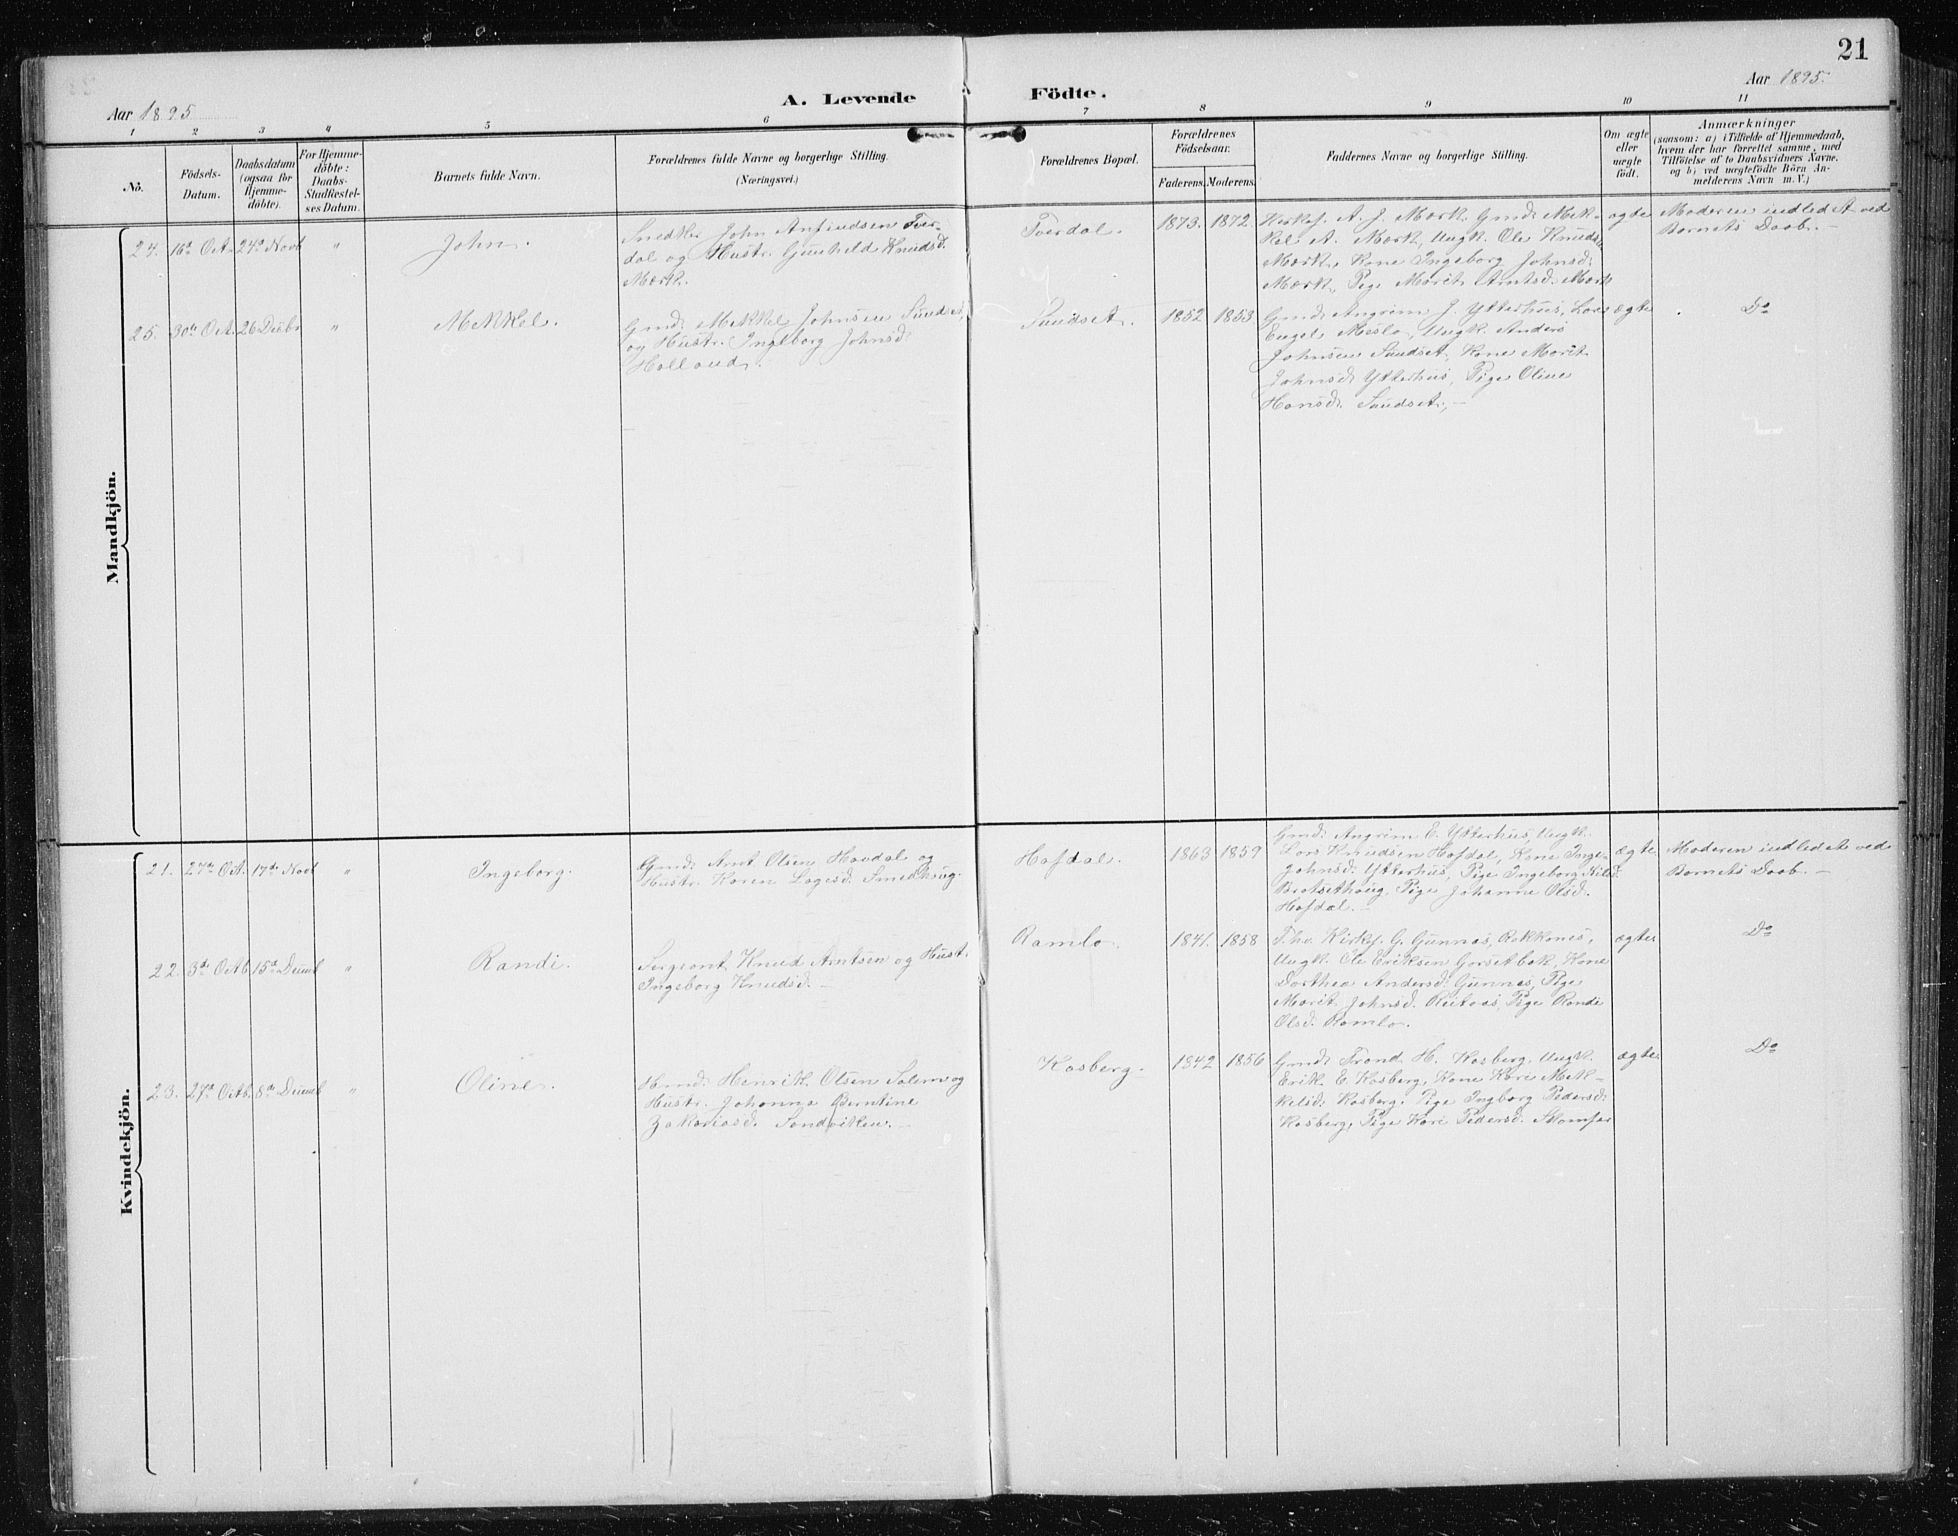 21
Aar 1895
A. Levende Födte.
Aar 1895.
1 2 3 4 5 6 7 8 9 10 11
No.
Födsels-
Datum.
Daabsdatum
(ogsaa for
Hjemme-
döbte).
For Hjemme-
döbte:
Daabs-
Stadfæstel-
ses Datum.
Barnets fulde Navn.
Forældrenes fulde Navne og borgerlige Stilling.
(Næringsvei.)
Forældrenes Bopæl.
Forældrenes
Födselsaar.
Faderens. Moderens.
Faddernes Navne og borgerlige Stilling.
Om ægte
eller
uægte
födt.
Anmærkninger
(saasom: a) i Tilfælde af Hjemmedaab,
hvem der har forrettet samme, med
Tilföielse af to Daabsvidners Navne,
og b) ved uægtefödte Börn An-
melderens Navn m. V.)
Mandkjön.
24. 16de Oct. 24de Novb " John.
Snedker John Anfindsen Tver-
dal og Hustr. Gunhild Knudsd.
Mærk.
Tverdal. 1873. 1872.
Kirkesj. A. J. Mærk, Gmd. Mek-
kel A. Mærk, Ungk. Ole Knudsen
Mærk, Kone Ingeborg Johnsd.
Mærk, Pige Marit Arntsd. Mærk
ægte
Moderen indledet ved
Barnets Daab. –
25. 30te Oct. 26 Decbr " Mekkel.
Gmd. Mekkel Johnsen Sundset,
og Hustr. Ingeborg Johnsd.
Holland.
Sundset. 1852 1853
Gmd. Angrim J. Ytterhus, Lars
Engel Meslo, Ungk. Anders
Johnsen Sundset, Kone Marit
Johnsd. Ytterhus, Pige Oline
Hansd. Sundset, –
ægte
Do
Kvindekjön.
21. 27de Oct. 17de Novb " Ingeborg.
Gmd. Arnt Olsen Havdal og
Hustr. Karen Lagesd. Smedhaug.
Hafdal. 1863 1859
Gmd. Angrim E. Ytterhus, Ungk.
Lars Knudsen Hafdal, Kone Inge-
Johnsd. Ytterhus, Pige Ingeborg Nilsd.
Pige Johanne Olsd.
Hafdal. –
ægte
Moderen indledet ved
Barnets Daab. –
22. 3de Octb. 15de Decemb " Randi.
Sergeant Knud Arntsen og Hust.
Ingeborg Knudsd. –
Ramlo. 1841. 1858
Kirkesj. G. Gunnes,
Ungk. Ole Eriksen Gorsetbak, Kone
Dorthea Andersd. Gunnes, Pige
Marit Johnsd. Pige Randi
Olsd. Ramlo.
ægte
Do
23. 27de Octb. 8de Decemb " Oline.
Henrik Olsen Solem og
Hustr. Johanna Berntine
Zakariasd. Sandviken. –
Kosberg. 1842 1856
Gmd. Trond H. Kosberg, Ungk.
Erik E. Kosberg, Kone Kari Mek-
kelsd. Kosberg, Pige Ingborg Pedersd.
Kosberg, Pige Kari Pedersd. Skamfar
ægte
Do